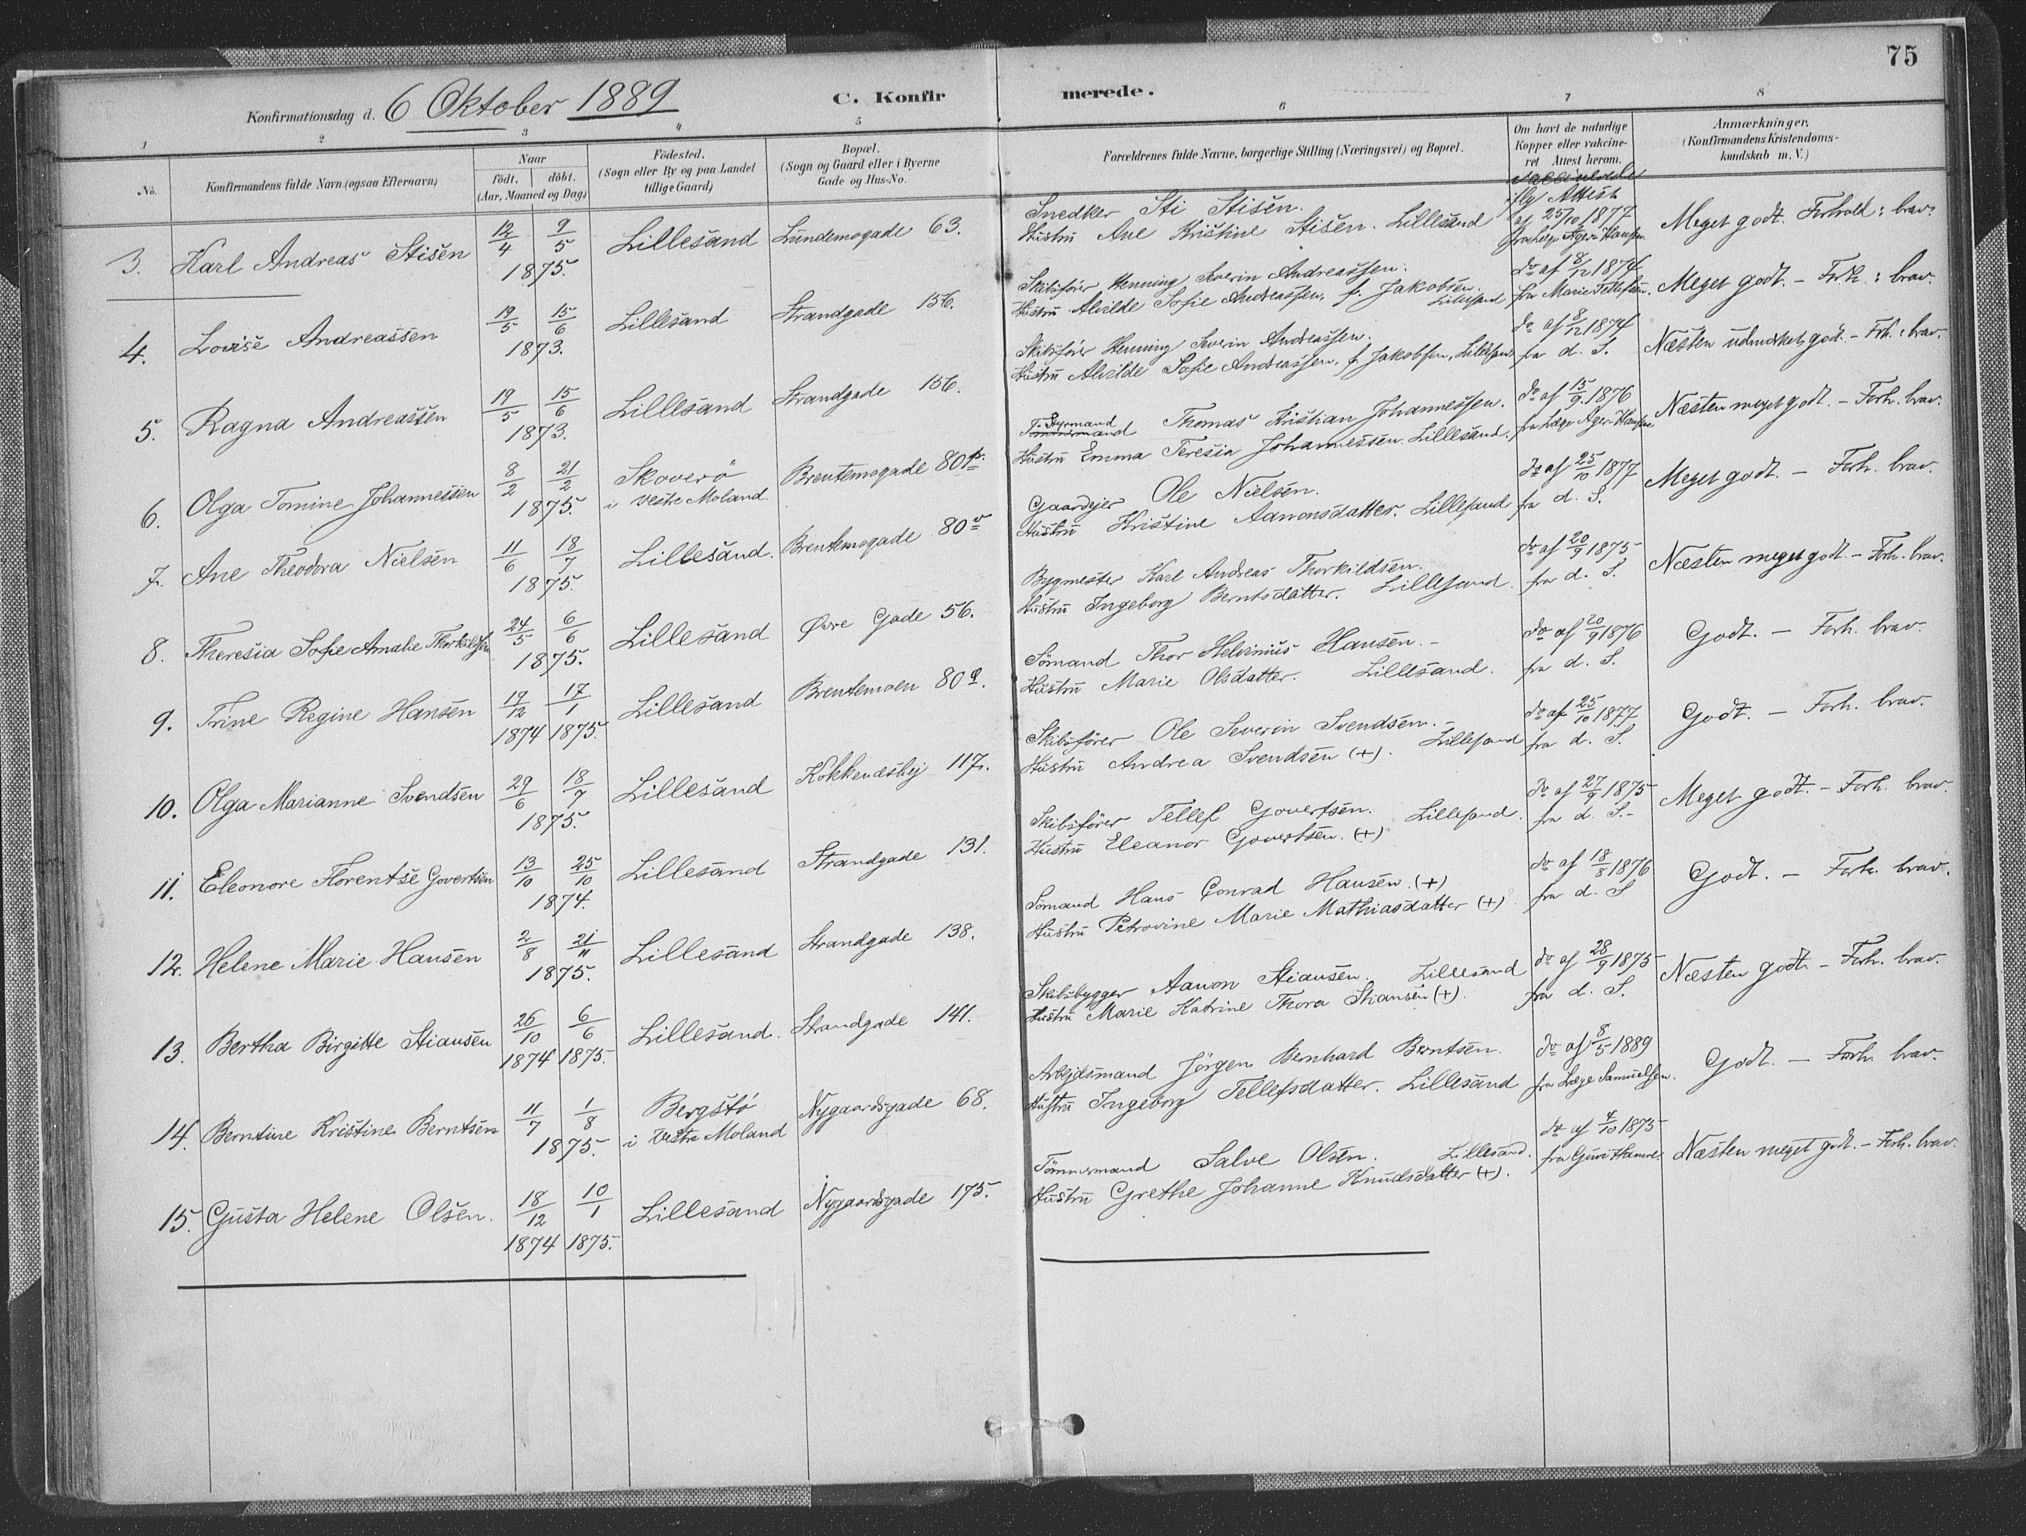 75
Konfirmationsdag d. 6 Oktober 1889
C. Konfirmerede.
1 2 3 4 5 6 7 8
No.
Konfirmandens fulde Navn (ogsaa Efternavn)
Naar
födt. döbt.
(Aar, Maaned og Dag)
Födested.
(Sogn eller By og paa Landet
tillige Gaard)
Bopæl.
(Sogn og Gaard eller i Byerne
Gade og Hus-No.
Forældrenes fulde Navne, borgerlige Stilling (Næringsvei) og Bopæl.
Om havt de naturlige
Kopper eller vakcine-
ret Attest herom.
Anmærkninger.
(Konfirmandens Kristendoms-
kundskab m. V.)
3. Karl Andreas Stisen 12/4 9/5 1875. Lillesand Lundemogade 63.
Snedker Sti Stisen.
Hustru Ane Kristine Stisen. Lillesand
iflg Attest
af 25/10 1877
fra Læge Ager-Hansen.
Meget godt. Forhold: brav.
4. Lovise Andreassen 19/5 15/6 1873. Lillesand Strandgade 156.
Skibsfører Henning Severin Andreassen.
Hustru Alvilde Sofie Andreassen, f. Jakobsen. Lillesand
do af 8/12 1874
fra Marie Tellefsen.
Meget godt. – Forh.: brav.
5. Ragna Andreassen 19/5 15/6 1873. Lillesand Strandgade 156.
Skibsfører Henning Severin Andreassen.
Hustru Alvilde Sofie Andreassen, f. Jakobsen, Lillesand
do af 8/12 1874
fra d. S.
Næsten udmerket godt. – Forh.: brav.
6. Olga Tomine Johannessen 8/2 21/2 1875. Skoverö
i Vestre Moland. Brentemogade 80
Styrmand
Tømmermand Thomas Kristian Johannessen.
Hustru Emma Teresia Johannessen. Lillesand.
do af 15/9 1876
fra Læge Ager-Hansen
Næsten meget godt. – Forh. brav.
7. Ane Theodora Nielsen 11/6 18/7 1875. Lillesand. Brentemogade 80
Gaardejer Ole Nielsen.
Hustru Kristine Aanonsdatter. Lillesand
do af 25/10 1877
fra d. S.
Meget godt. – Forh. brav.
8. Theresia Sofie Amalie Thorkildsen 24/5 6/6 1875. Lillesand Øvre Gade 56.
Bygmester Karl Andreas Thorkildsen.
Hustru Ingeborg Berntsdatter. Lillesand.
do af 20/9 1875
fra d. S.
Næsten meget godt – Forh. brav.
9. Trine Regine Hansen 19/12 17/1 1874 1875. Lillesand Brentemoen 80
Sømand Thor Helvinius Hansen. –
Hustru Marie Olsdatter. Lillesand.
do af 20/9 1876
fra d. S.
Godt. – Forh. brav.
10. Olga Marianne Svendsen 29/6 18/7 1875. Lillesand Kokkenæshej 117.
Skibsfører Ole Severin Svendsen. –
Hustru Andrea Svendsen (+). Lillesand
do af 25/10 1877
fra d. S.
Godt. – Forh. brav.
11. Eleonore Florentse Govertsen 13/10 25/10 1874. Lillesand Strandgade 131.
Skibsfører Tellef Govertsen. Lillesand.
Hustru Eleanor Govertsen. (+)
do af 27/9 1875
fra d. S. –
Meget godt. – Forh. brav.
12. Helene Marie Hansen 2/8 21/11 1875. Lillesand Strandgade 138.
Sømand Hans Conrad Hansen. (+)
Hustru Petrovine Marie Mathiasdatter (+).
do af 18/8 1876
fra d. S
Godt. – Forh. brav.
13. Bertha Birgitte Stiansen 26/10 6/6 1874 1875. Lillesand. Strandgade 141.
Skibsbygger Aanon Stiansen. Lillesand
Hustru Marie Katrine Thora Stiansen (+).
do af 28/9 1875
fra d. S.
Næsten godt. – Forh. brav.
14. Berntine Kristine Berntsen 11/7 1/8 1875. Bergstø
i Vestre Moland Nygaardsgade 68.
Arbejdsmand Jörgen Bernhard Berntsen.
Hustru Ingeborg Tellefsdatter. Lillesand
do af 8/5 1889
fra Læge Samuelsen.
Godt. – Forh. brav.
15. Gusta Helene Olsen. 18/12 10/1 1874 1875. Lillesand Nygaardsgade 175.
Tømmermand Salve Olsen. Lillesand.
Hustru Grethe Johanne Knudsdatter (+).
do af 4/10 1875
Næsten meget godt. – Forh. brav.